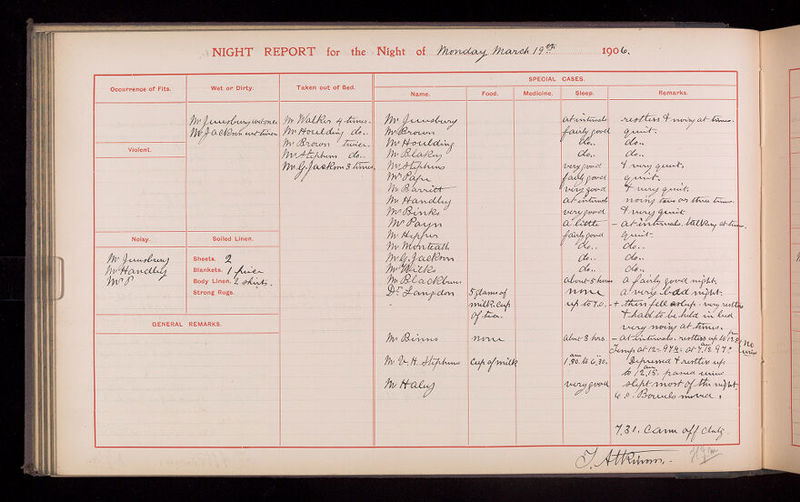 NIGHT REPORT for the Night of Monday March 19th 1906.
Occurrence of Fits.
Wet or Dirty.
Taken out of Bed.
SPECIAL CASES.
Name.
Food.
Medicine.
Sleep.
Remarks.
Violent.
Noisy.
Soiled Linen.
Mr Handley
Sheets. 2
Blankets. 1
Body Linen. 2 shirts.
Strong Rugs.
GENERAL REMARKS.
Mr Jackson wet twice
Mr Walker 4 times.
Mr Houlding do..
Mr Brown twice.
Mr Stephens do..
Mr G. Jackson 3 times
Mr Brown fairly good quiet.
Mr Houlding do.. do..
Mr Blakey do.. do..
Mr Stephens very good & very quiet.
fairly good quiet.
Mr Barritt very good & very quiet.
Mr Handley at intervals noisy two or three times.
Mr Binks very good & very quiet
Mr Payn a little - at intervals. talking at times.
fairly good quiet.
Mr Monteath do.. do..
Mr G. Jackson do.. do..
Mr Wilks do.. do..
Mr Blackburn about 5 hours a fairly good night.
Dr Langdon 5 glasses of none a very bad night.
milk. Cup up to 7.0. - & then fell asleep. very restless
of tea. & had to be held in bed
very noisy at times.
Mr Binns none about 3 hrs. - at intervals. restless up to
Mr V. H. Stephens Cup of milk 1.30. to 6.30. Depressed & restless up
to 12.15. passed urine
Mr Haley very good slept most of the night
Bowels moved.
7.31. Came off duty.
J. Atkinson.